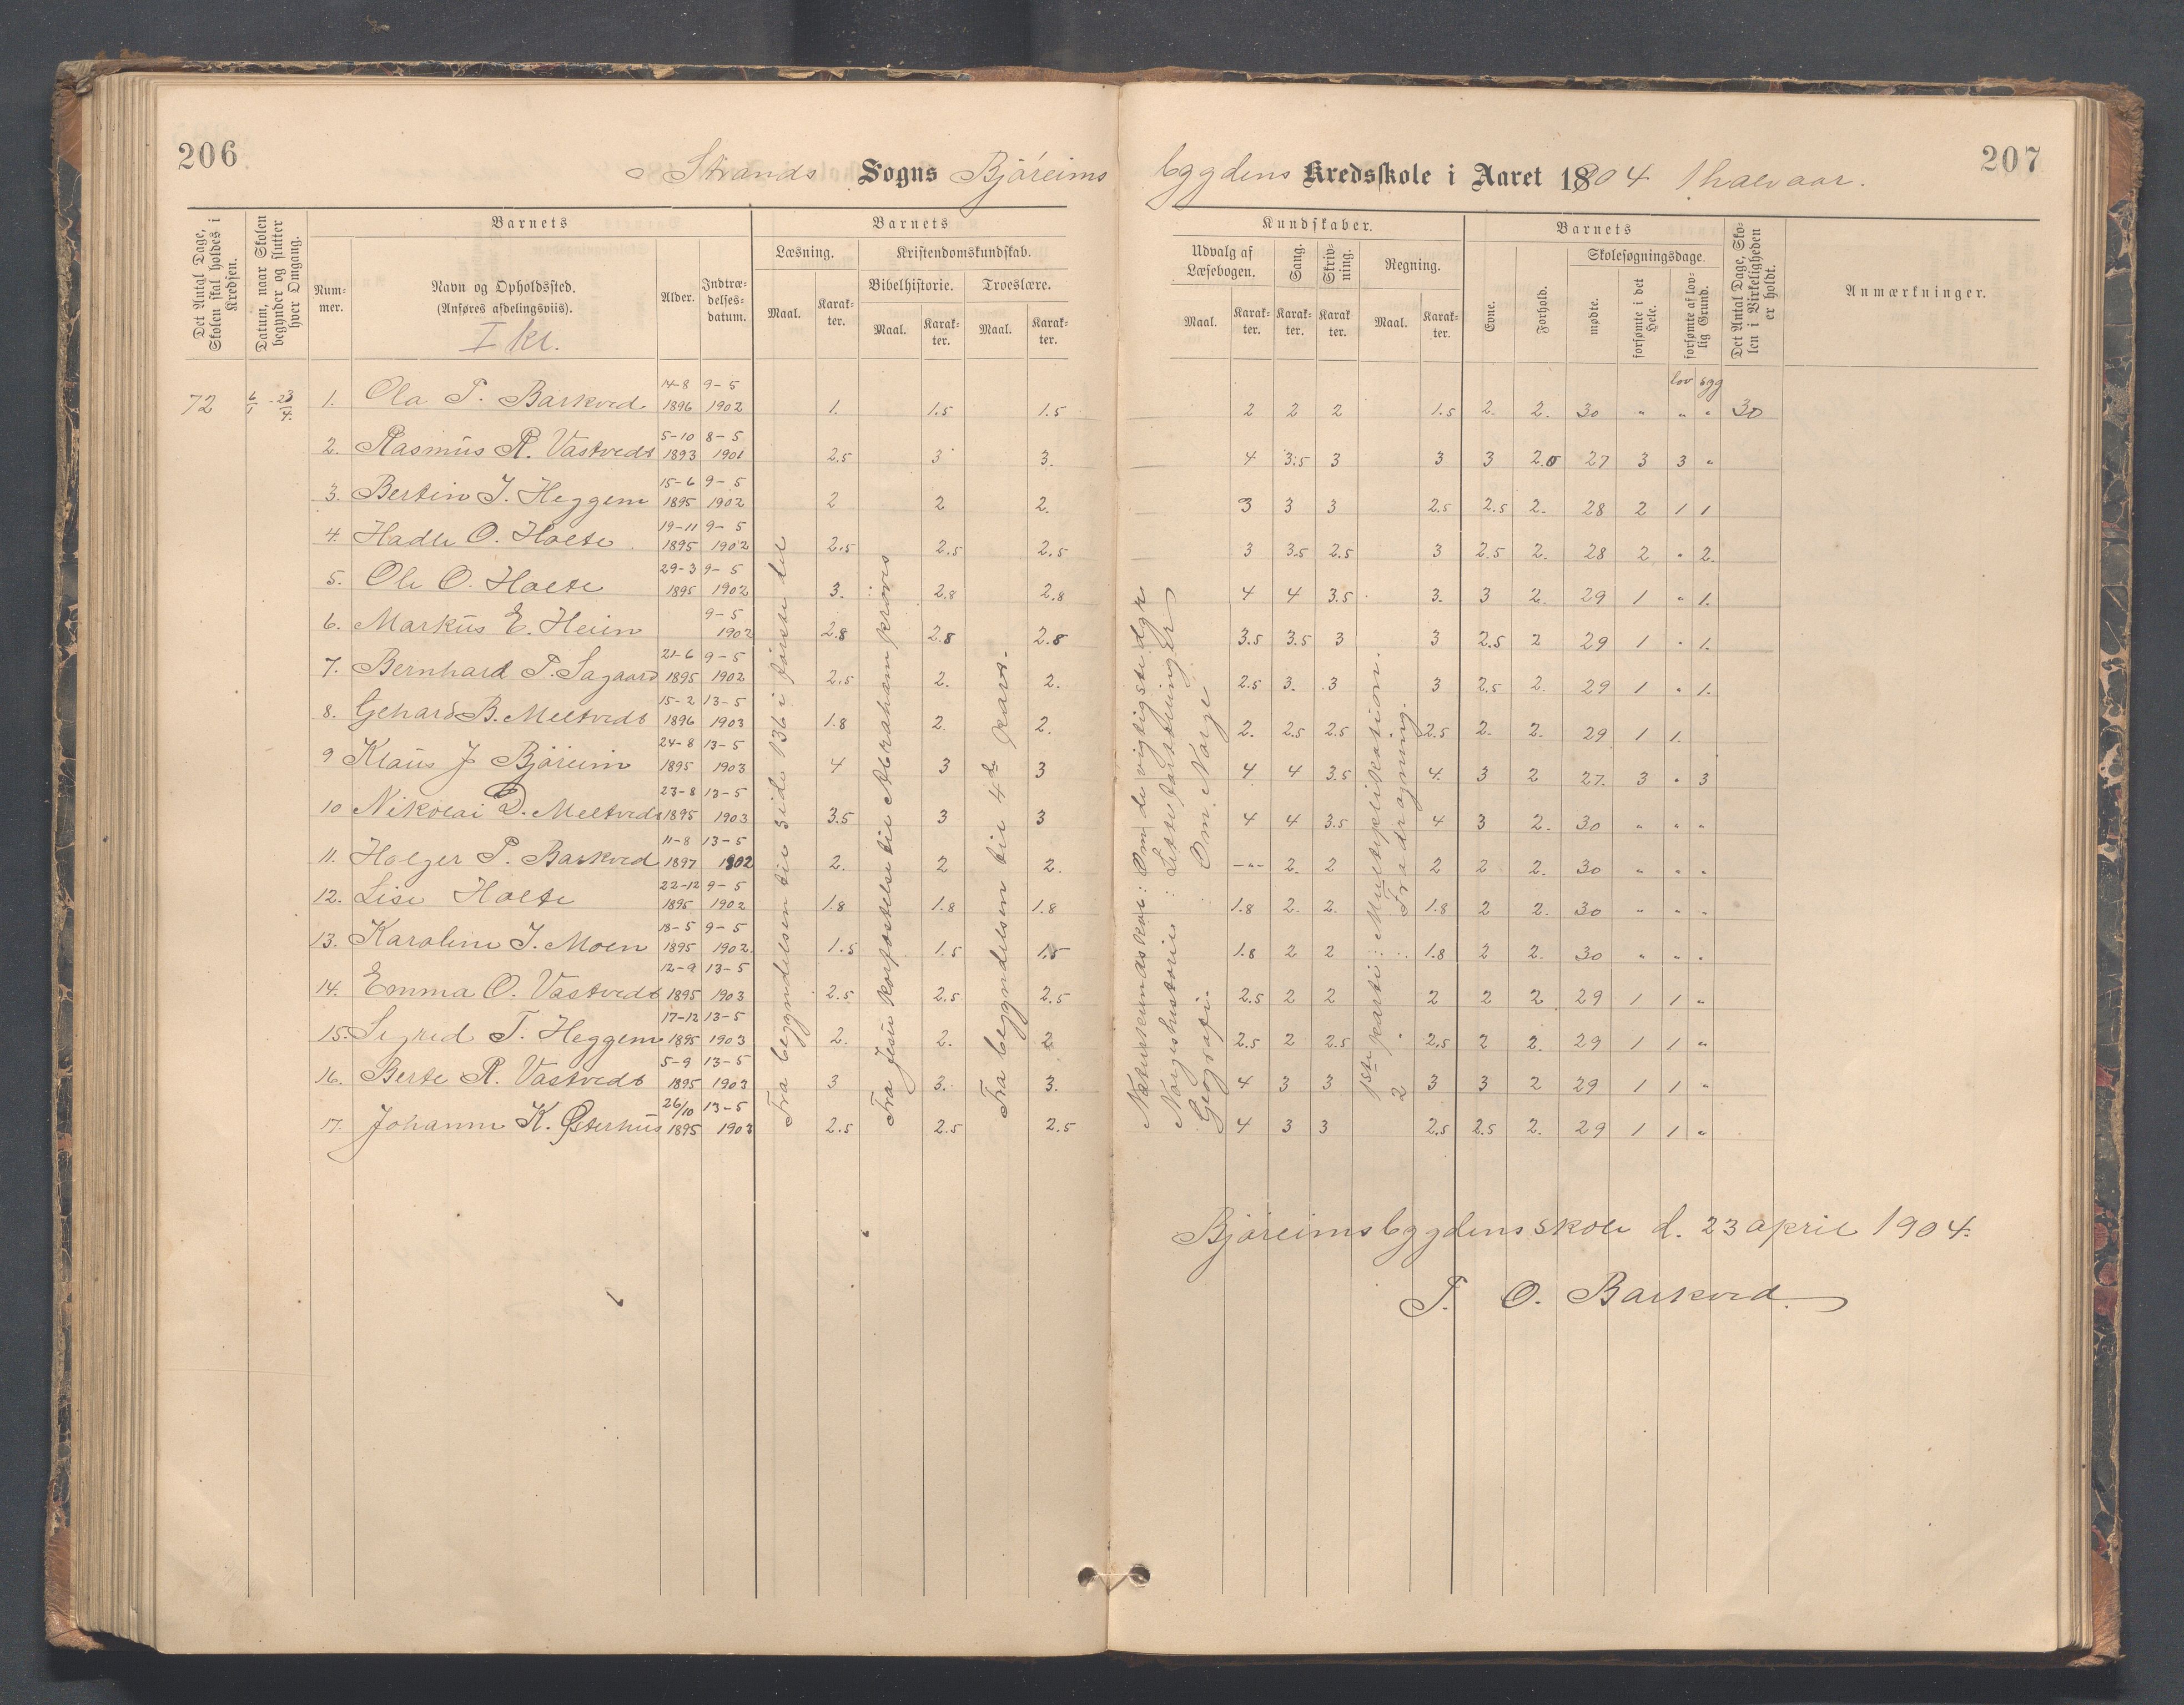 206
207
Strands Sogns Bjóreims bygdens Kredsskole i Aaret 1904 1 halvaar.
Det Antal Dage, Skolen skal holdes i Kredsen.
Datum, naar Skolen begynder og slutter hver Omgang.
Barnets
Nummer.
Navn og Opholdssted.
(Anføres afdelingsviis).
I kl.
Alder.
Indtrædelses-datum.
Barnets
Læsning.
Maal.
Karakter.
Kristendomskundskab.
Bibelhistorie.
Maal.
Karakter.
Troeslære.
Maal.
Karakter.
Kundskaber.
Udvalg af Læsebogen.
Maal.
Karakter.
Sang.
Karakter.
Skrivning.
Karakter.
Regning.
Maal.
Karakter.
Barnets
Evne.
Forhold.
Skolesøgningsdage.
mødte.
forsømte i det Hele.
forsømte af lovlig Grund.
Det Antal Dage, Skolen i Virkeligheden er holdt.
Anmærkninger.
lov sgg
72 6/1 - 23/4. 1. Ola T. Barkved 14-8 1896 9-5 1902 1. 1.5 1.5 2 2 2 1.5 2. 2. 30 " " " 30
2. Rasmus R. Vastvedt 5-10 1893 8-5 1901 2.5 3 3. 4 3.5 3 3 3 2.0 27 3 3 "
3. Bertin J. Heggem 15-6 1895 9-5 1902 2 2 2. 3 3 3 2.5 2.5 2. 28 2 1 1
4. Hadle O. Holte 19-11 1895 9-5 1902 2.5 2.5 2.5 3 3.5 2.5 3 2.5 2. 28 2 " 2.
5. Ole O. Holte 29-3 1895 9-5 1902 3. 2.8 2.8 4 4 3.5 3. 3 2. 29 1 " 1.
6. Markus E. Heim 9-5 1902 2.8 2.8 2.8 3.5 3.5 3 3 2.5 2 29 1 " 1.
7. Bernhard P. Sagaard 21-6 1895 9-5 1902 2.5 2. 2. 2.5 3. 3 3 2.5 2. 29 1 " 1.
8. Gehard B. Meltvedt 15-2 1896 13-5 1903 1.8 2. 2. 2. 2.5 2.5 2.5 2. 2. 29 1 1.
9 Klaus J Bjóreim 24-8 1895 13-5 1903 4 3 3 4 4 3.5 4. 3 2 27. 3 " 3
10 Nikolai D. Meltvedt 23-8 1895 13-5 1903 3.5 3 3 4 4 3.5 4 3 2. 30 " " "
11. Holger T. Barkved 11-8 1897 13-5 1902 2. 2 2. -"- 2. 2 2 2 2. 30 " " "
12. Lise Holte 22-12 1895 9-5 1902 1.8 1.8 1.8 1.8 2. 2. 1.8 2 2. 30 " " "
13. Karoline J. Moen 18-5 1895 9-5 1902. 1.5 1.5 1.5 1.8 2 2 1.8 2 2. 30 " " "
14. Emma O. Vastvedt 12-9 1895 13-5 1903 2.5 2.5 2.5 2.5 2 2 2 2 2 29 1 1 "
15. Sigred T. Heggem 17-12 1895 13-5 1903 2. 2. 2 2.5 2 2.5 2.5 2 2. 29 1 1 "
16. Berte R. Vastvedt 5-9 1895 13-5 1903 3 3. 3. 4 3 3 3 3 2 29 1 1 "
17. Johanne K. Østerhus 26/10 1895 13-5 1903 2.5 2.5 2.5 4 3 3 2.5 2.5 2. 29 1 1 "
Fra begyndelsen til side 136 i første del
Fra Jesu korsfæstelse til Abraham prøves
Fra begyndelsen til 4de part.
Naturkundskab: Om de vigtigste dyr
Norgeshistorie: Lette fortællinger
Geografi: Om Norge
1ste parti: Multiplikation.
2 Fradragning.
Bjóreimsbygdens skole d. 23 april 1904.
T. O. Barkved.